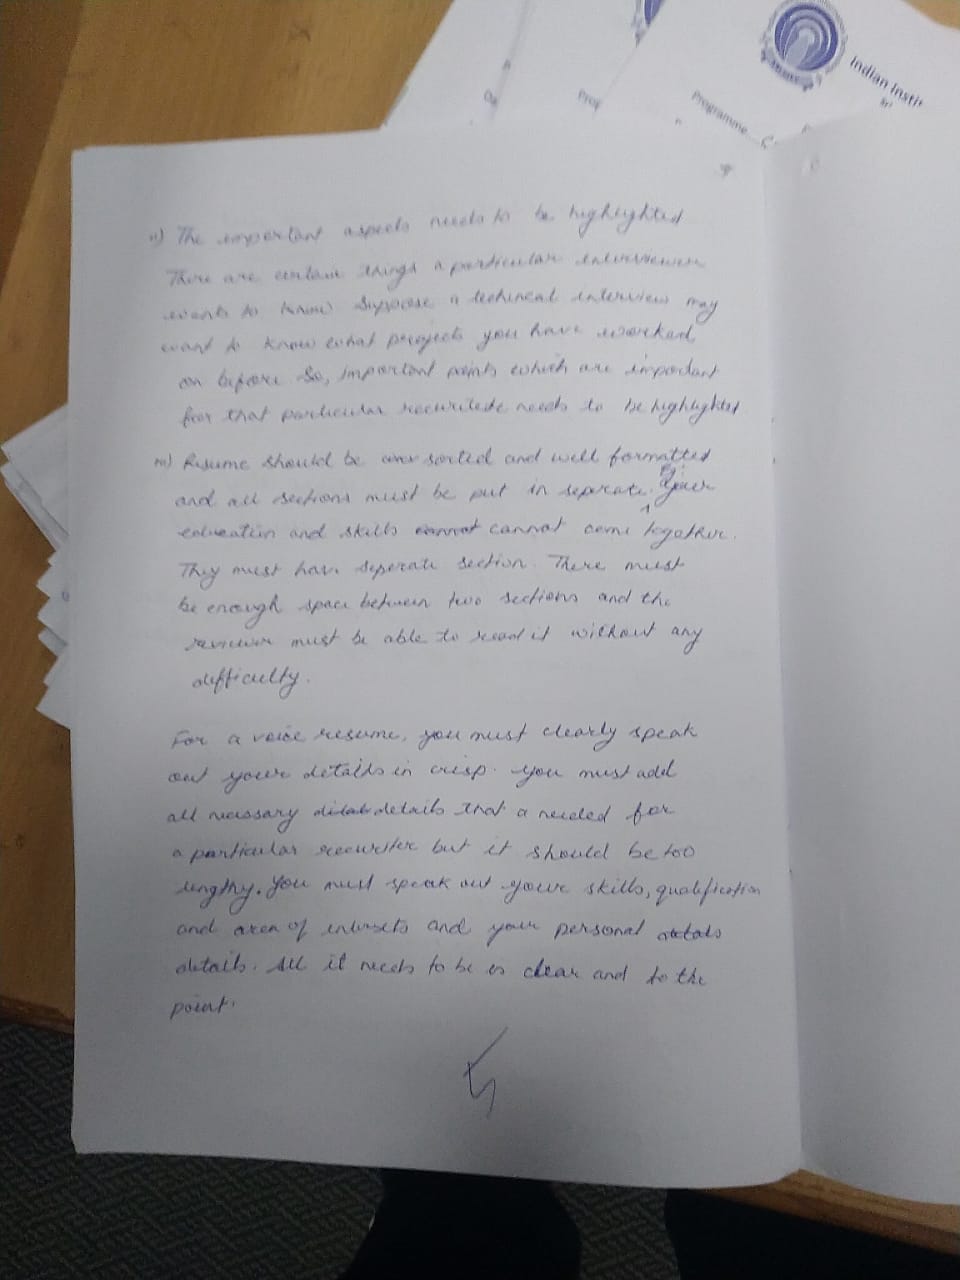 Indian Instit
Programme
ii) The important aspects needs to be highlighted
There are certain things a particular interviewer
wants to know. Suppose a techincal interview may
want to know what projects you have worked
on before. So, important points which are important
for that particular needs to be highlighted
iii) Resume should be sorted and well formatted
and all sections must be put in separate. Your
education and skills cannot cannot come together.
They must have seperate section. There must
be enough space between two sections and the
reviewer must be able to read it without any
difficulty.
For a voice resume, you must clearly speak
out your details in crisp. You must add
all necessary details that a needed for
a particular recuriter but it should be too
lengthy. You must speak out your skills, qualification
and area of and your personal
details. All it needs to be is clear and to the
point.